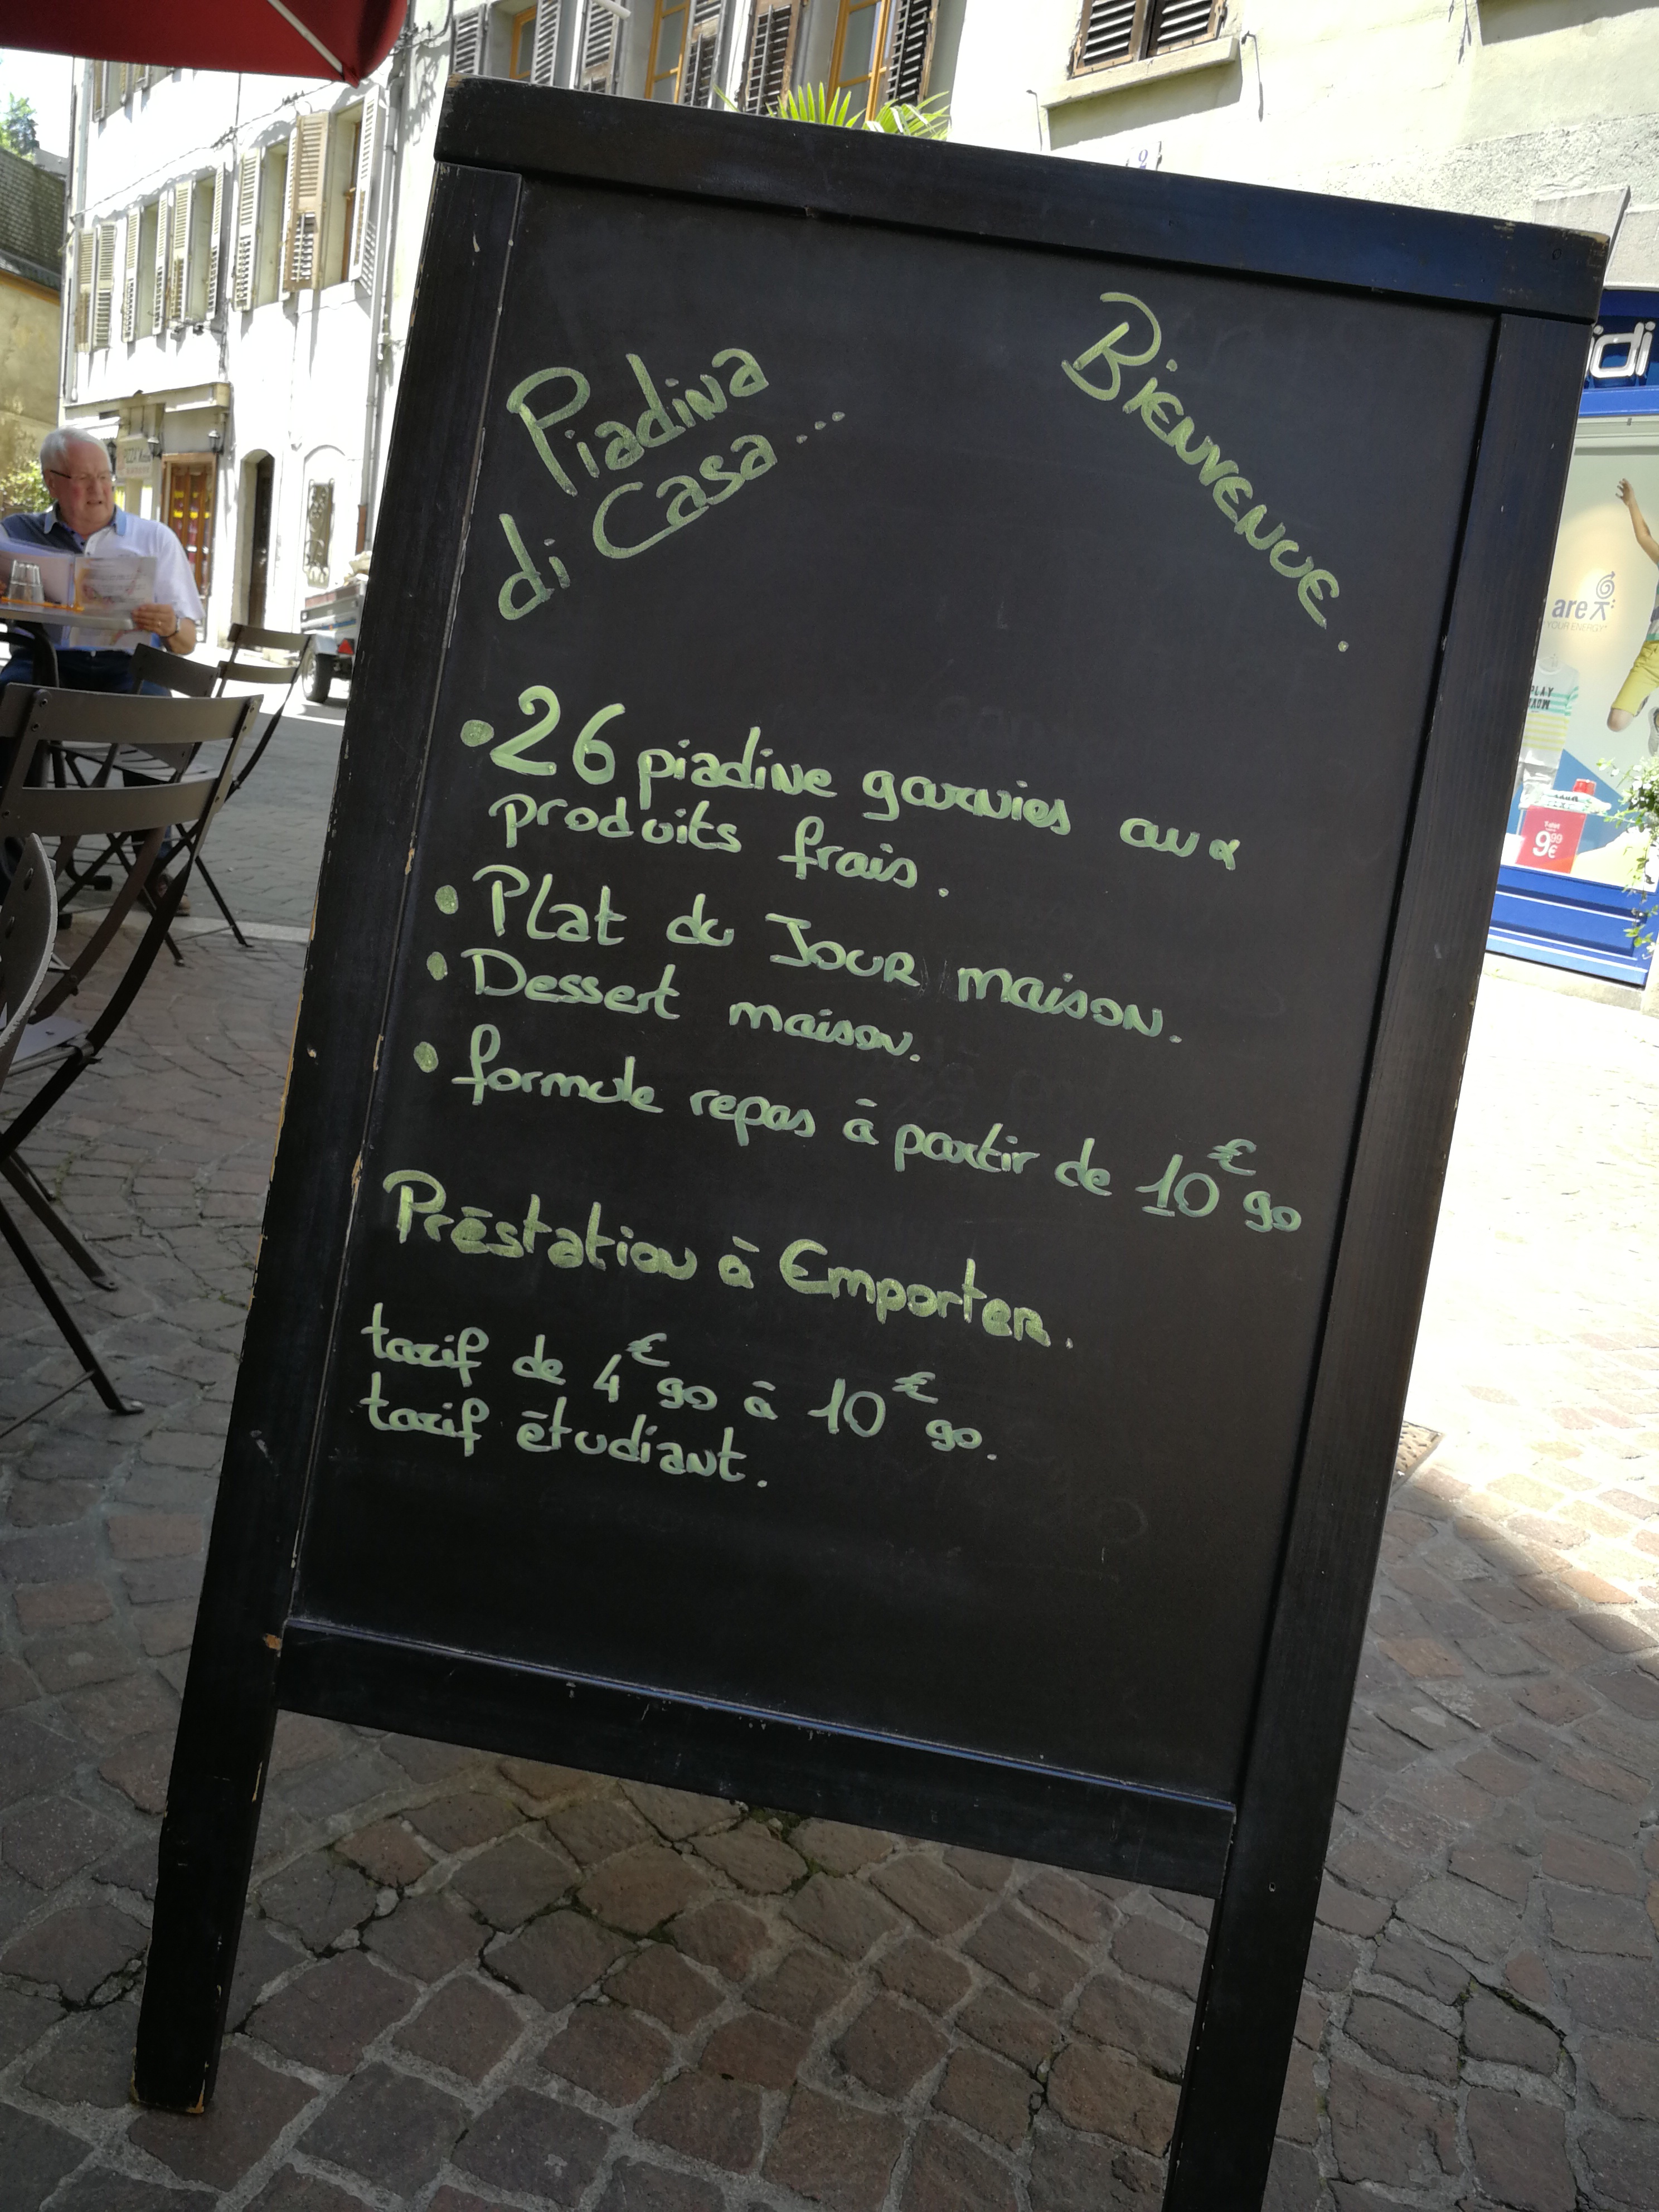 Piadina
di Casa...
Bienvenue.
• 26 piadine garnies aux
produits frais.
• Plat du Jour maison.
• Dessert maison.
• formule repas à partir de 10€90
Préstation à Emporter.
tarif de 4€90 à 10€90.
tarif étudiant.
idi
are
YOUR ENERGY
PLAY
9€99